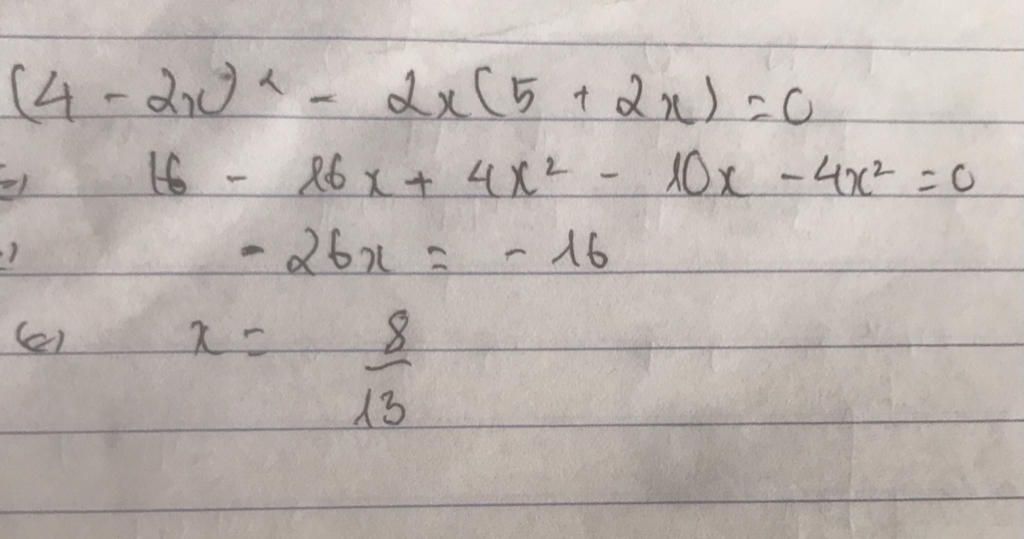 (4 - 2x)² - 2x(5 + 2x) = 0
⇔ 16 - 16x + 4x² - 10x - 4x² = 0
⇔ - 26x = - 16
⇔ x = 8/13